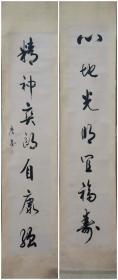 心地光明宜福寿
精神爽朗自康强